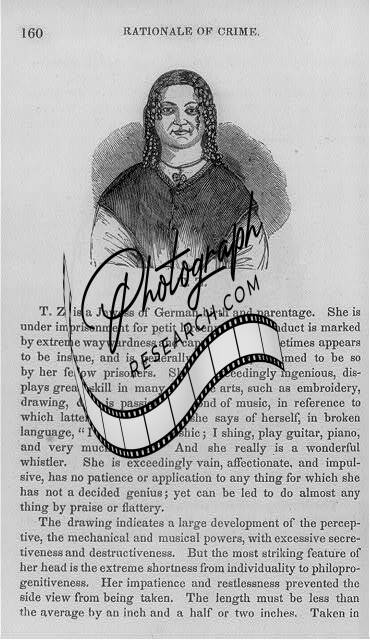 160
RATIONALE OF CRIME.
Photograph
RESEARCH.COM
T. Z. is a Jewess of German birth and parentage. She is
under imprisonment for petit conduct is marked
by extreme waywardness and sometimes appears
to be insane, and is generally to be so
by her fellow prisoners. She exceedingly ingenious, dis-
plays great skill in many arts, such as embroidery,
drawing, is passionately fond of music, in reference to
which latter she says of herself, in broken
language, “I shic; I shing, play guitar, piano,
and very much And she really is a wonderful
whistler. She is exceedingly vain, affectionate, and impul-
sive, has no patience or application to any thing for which she
has not a decided genius; yet can be led to do almost any
thing by praise or flattery.
The drawing indicates a large development of the percep-
tive, the mechanical and musical powers, with excessive secre-
tiveness and destructiveness. But the most striking feature of
her head is the extreme shortness from individuality to philopro-
genitiveness. Her impatience and restlessness prevented the
side view from being taken. The length must be less than
the average by an inch and a half or two inches. Taken in